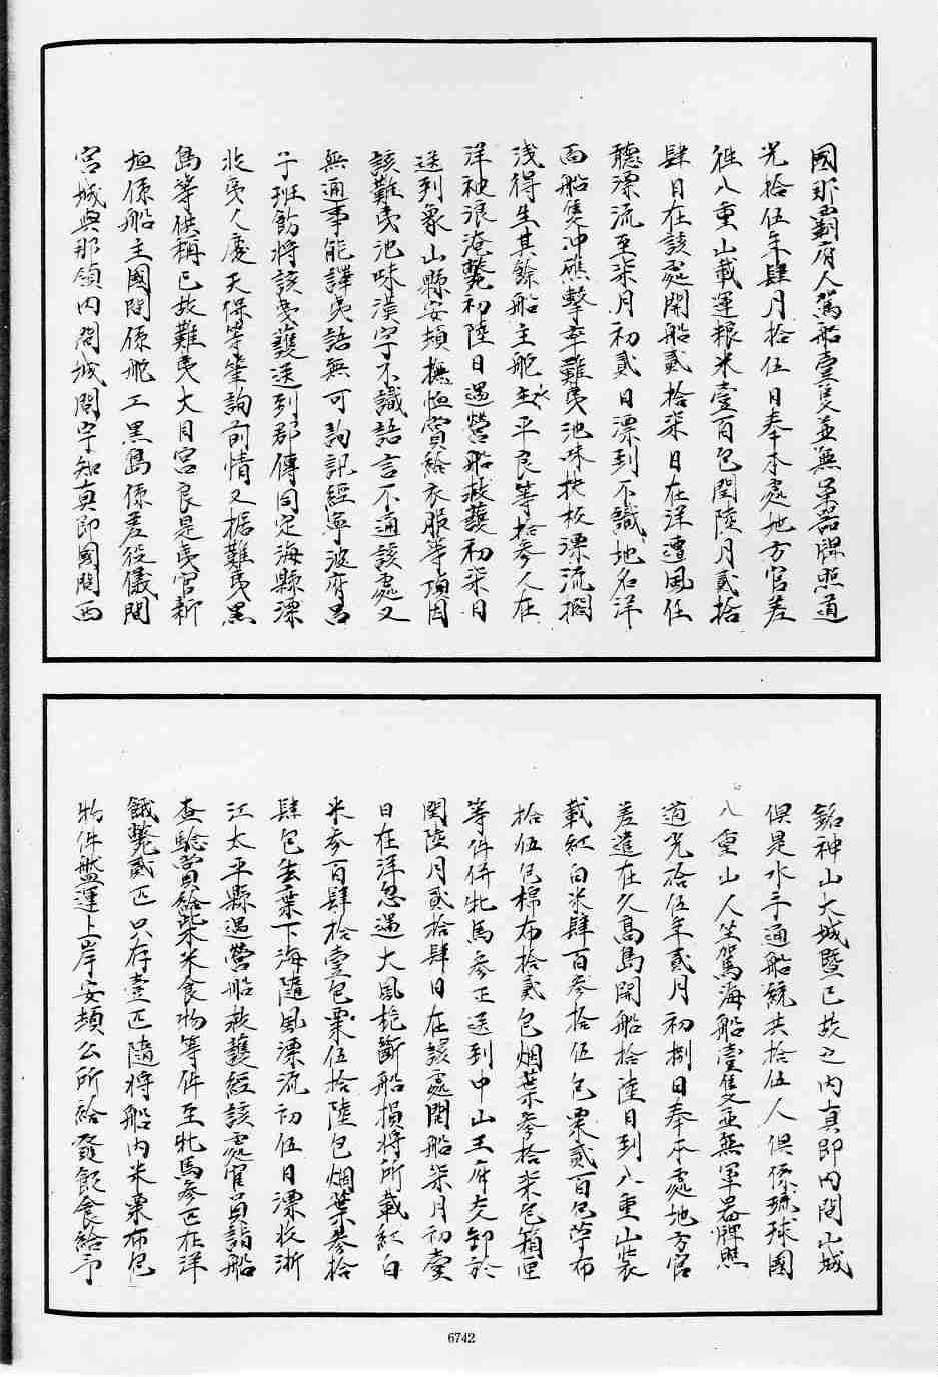 國那霸府人駕船壹隻並無軍器牌照道
光拾伍年肆月拾伍日奉本處地方官差
往八重山載運粮米壹百包閏陸月貳拾
肆日在該處開船貳拾柒日在洋遭風任
聽漂流至柒月初貳日漂到不識地名洋
面船隻冲礁擊碎難夷池味扶板漂流擱
淺得生其餘船主舵主水平良等拾參人在
洋被浪淹斃初陸日遇營船救護初柒日
送到象山縣安頓撫恤賞給衣服等項因
該難夷池味漢字不識語言不通該處又
無通事能譯夷語無可詢訊經寧波府呂
子班飭將該夷護送到郡傳同定海縣漂
收夷人慶天保等筆詢前情又據難夷黑
島等供稱已故難夷大目宮良是夷官新
垣係船主國閣係舵工黑島係差役儀間
宮城與那領內間城間宇知真即國間西
銘神山大城暨已故之內真即內間山城
俱是水手通船統共拾伍人俱係琉球國
八重山人坐駕海船壹隻並無軍器牌照
道光拾伍年貳月初捌日奉本處地方官
差遣在久高島開船拾陸日到八重山裝
載紅白米肆百參拾伍包粟貳百包苧布
拾伍包棉布拾貳包烟葉參拾柒包箱匣
等件併牝馬參正送到中山王府交卸於
閏陸月貳拾肆日在該處開船柒月初壹
日在洋忽遇大風桅斷船損將所載紅白
米參百肆拾壹包粟伍拾陸包烟葉參拾
肆包丟棄下海隨風漂流初伍日漂收浙
江太平縣遇營船救護經該處官員詣船
查驗賞給柴米食物等件至牝馬參匹在洋
餓斃貳匹只存壹匹隨將船內米粟布包
物件盤運上岸安頓公所給發飯食給予
6742